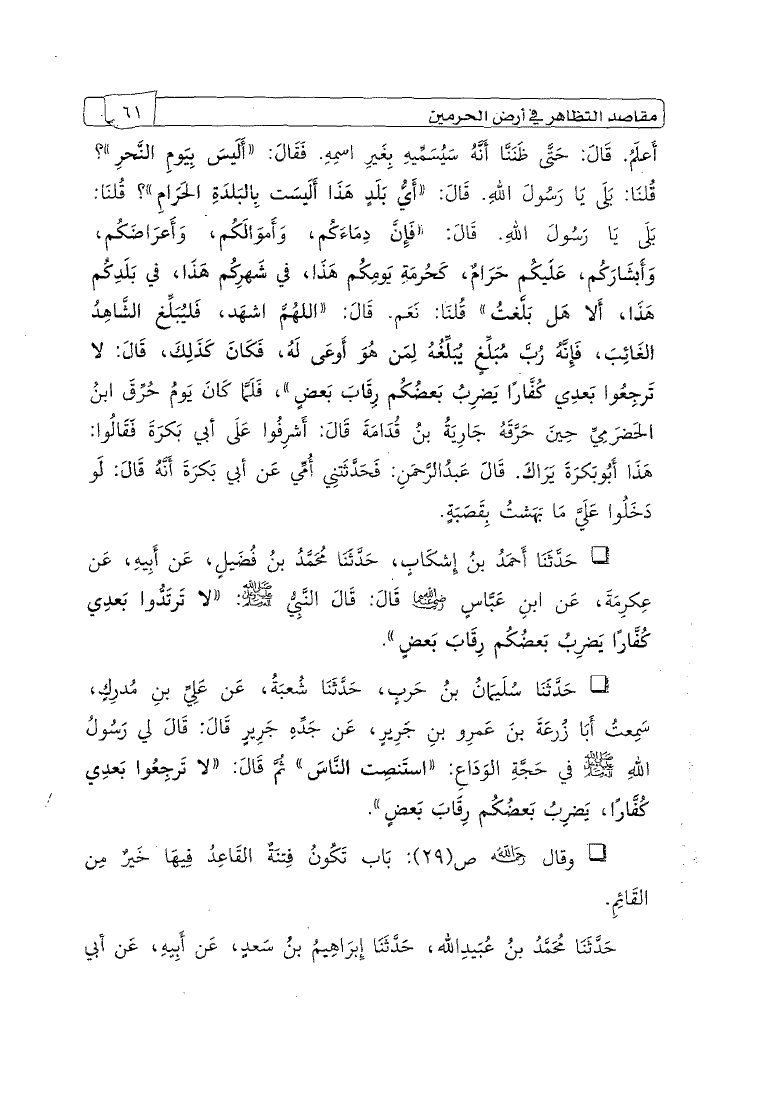 مقاصد التظاهر في أرض الحرمين ٦١
أَعلَمُ. قَالَ: حَتَّى ظَنَنَّا أَنَّهُ سَيُسَمِّيهِ بِغَيرِ اسمِهِ. فَقَالَ: «أَلَيسَ بِيَومِ النَّحرِ»؟
قُلنَا: بَلَى يَا رَسُولَ اللهِ. قَالَ: «أَيُّ بَلَدٍ هَذَا أَلَيسَت بِالبَلدَةِ الحَرَامِ»؟ قُلنَا:
بَلَى يَا رَسُولَ اللهِ. قَالَ: «فَإِنَّ دِمَاءَكُم، وَأَموَالَكُم، وَأَعرَاضَكُم،
وَأَبشَارَكُم، عَلَيكُم حَرَامٌ، كَحُرمَةِ يَومِكُم هَذَا، في شَهرِكُم هَذَا، في بَلَدِكُم
هَذَا، أَلا هَل بَلَّغتُ» قُلنَا: نَعَم. قَالَ: «اللهُمَّ اشهَد، فَليُبَلِّغ الشَّاهِدُ
الغَائِبَ، فَإِنَّهُ رُبَّ مُبَلِّغٍ يُبَلِّغُهُ لِمَن هُوَ أَوعَى لَهُ، فَكَانَ كَذَلِكَ، قَالَ: لا
تَرجِعُوا بَعدِي كُفَّارًا يَضرِبُ بَعضُكُم رِقَابَ بَعضٍ»، فَلَمَّا كَانَ يَومُ حُرِّقَ ابنُ
الحَضرَمِيِّ حِينَ حَرَّقَهُ جَارِيَةُ بنُ قُدَامَةَ قَالَ: أَشرِفُوا عَلَى أَبي بَكرَةَ فَقَالُوا:
هَذَا أَبُوبَكرَةَ يَرَاكَ. قَالَ عَبدُالرَّحمَنِ: فَحَدَّثَتنِي أُمِّي عَن أَبي بَكرَةَ أَنَّهُ قَالَ: لَو
دَخَلُوا عَلَيَّ مَا بَهَشتُ بِقَصَبَةٍ.
❏ حَدَّثَنَا أَحمَدُ بنُ إِشكَابٍ، حَدَّثَنَا مُحَمَّدُ بنُ فُضَيلٍ، عَن أَبِيهِ، عَن
عِكرِمَةَ، عَن ابنِ عَبَّاسٍ رضي الله عنهما قَالَ: قَالَ النَّبِيُّ ﷺ: «لا تَرتَدُّوا بَعدِي
كُفَّارًا يَضرِبُ بَعضُكُم رِقَابَ بَعضٍ».
❏ حَدَّثَنَا سُلَيمَانُ بنُ حَربٍ، حَدَّثَنَا شُعبَةُ، عَن عَلِيِّ بنِ مُدرِكٍ،
سَمِعتُ أَبَا زُرعَةَ بنَ عَمرِو بنِ جَرِيرٍ، عَن جَدِّهِ جَرِيرٍ قَالَ: قَالَ لي رَسُولُ
اللهِ ﷺ في حَجَّةِ الوَدَاعِ: «استَنصِت النَّاسَ» ثُمَّ قَالَ: «لا تَرجِعُوا بَعدِي
كُفَّارًا، يَضرِبُ بَعضُكُم رِقَابَ بَعضٍ».
❏ وقال رحمه الله ص(٢٩): بَاب تَكُونُ فِتنَةٌ القَاعِدُ فِيهَا خَيرٌ مِن
القَائِمِ.
حَدَّثَنَا مُحَمَّدُ بنُ عُبَيدِالله، حَدَّثَنَا إِبرَاهِيمُ بنُ سَعدٍ، عَن أَبِيهِ، عَن أَبي